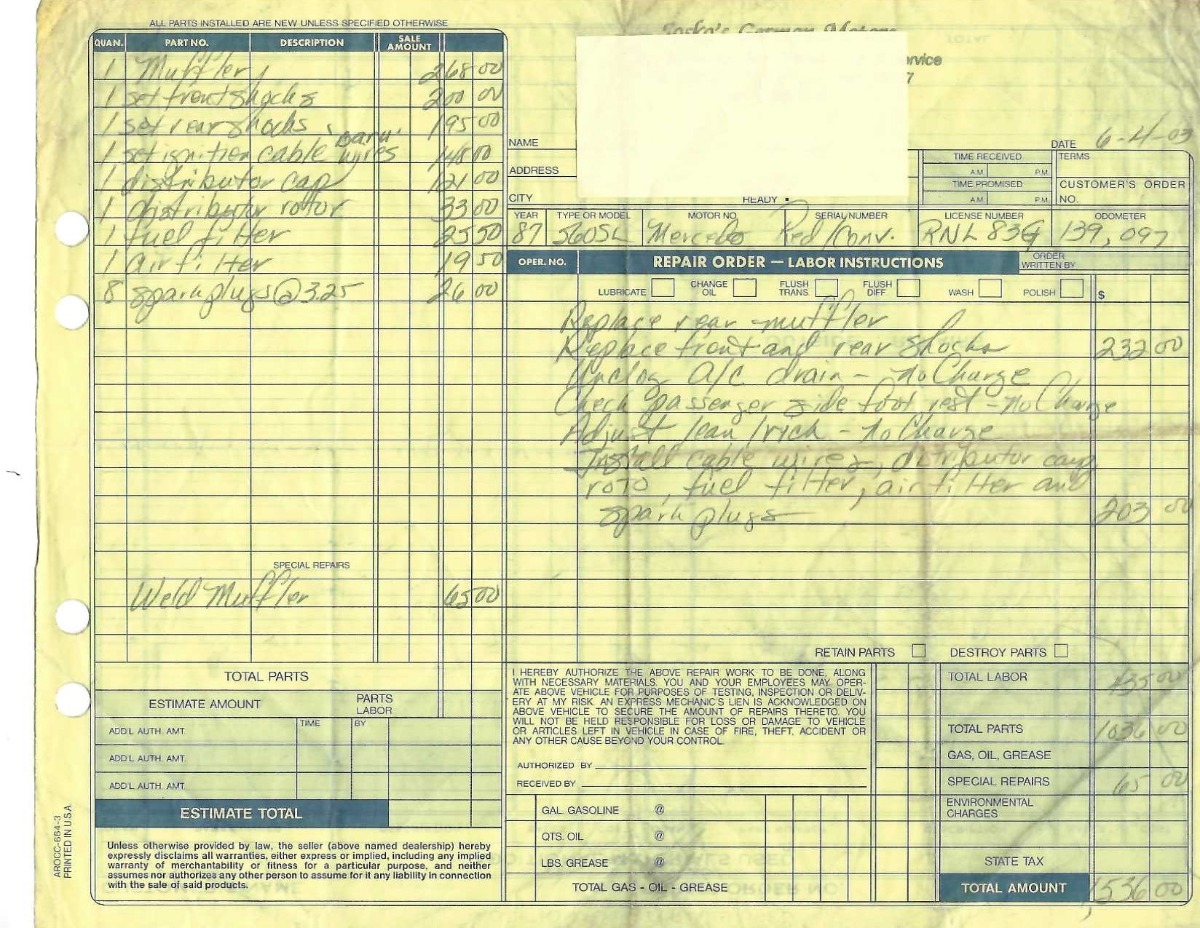 ALL PARTS INSTALLED ARE NEW UNLESS SPECIFIED OTHERWISE
QUAN. PART NO. DESCRIPTION SALE AMOUNT
1 Muffler 268 00
1 set front shocks 200 00
1 set rear shocks 195 00
1 set ignition cable wires 148 00
1 distributor cap 121 00
1 distributor rotor 33 00
1 fuel filter 25 50
1 air filter 19 50
8 spark plugs @ 3.25 26 00
SPECIAL REPAIRS
Weld Muffler 65 00
TOTAL PARTS
ESTIMATE AMOUNT PARTS LABOR
TIME BY
ADD'L AUTH. AMT.
ADD'L AUTH. AMT.
ADD'L AUTH. AMT.
ESTIMATE TOTAL
Unless otherwise provided by law, the seller (above named dealership) hereby
expressly disclaims all warranties, either express or implied, including any implied
warranty of merchantability or fitness for a particular purpose, and neither
assumes nor authorizes any other person to assume for it any liability in connection
with the sale of said products.
AROCC-664-3
PRINTED IN U.S.A.
German Motors
7
NAME DATE 6-4-03
ADDRESS
CITY READY
TIME RECEIVED A.M. P.M. TERMS
TIME PROMISED A.M. P.M. CUSTOMER'S ORDER NO.
YEAR TYPE OR MODEL MOTOR NO. SERIAL NUMBER LICENSE NUMBER ODOMETER
87 560SL Mercedes Red/Conv. RNL 83G 139,097
OPER. NO. REPAIR ORDER — LABOR INSTRUCTIONS ORDER WRITTEN BY
LUBRICATE CHANGE OIL FLUSH TRANS. FLUSH DIFF WASH POLISH $
Replace rear muffler
Replace front and rear shocks 232 00
Unclog A/C drain - No Charge
Check passenger side foot rest - No Charge
Adjust lean/rich - No Charge
Install cable wires, ditributor cap
roto, fuel filter, air filter and
spark plugs 203 00
RETAIN PARTS DESTROY PARTS
I HEREBY AUTHORIZE THE ABOVE REPAIR WORK TO BE DONE, ALONG
WITH NECESSARY MATERIALS. YOU AND YOUR EMPLOYEES MAY OPER-
ATE ABOVE VEHICLE FOR PURPOSES OF TESTING, INSPECTION OR DELIV-
ERY AT MY RISK. AN EXPRESS MECHANIC'S LIEN IS ACKNOWLEDGED ON
ABOVE VEHICLE TO SECURE THE AMOUNT OF REPAIRS THERETO. YOU
WILL NOT BE HELD RESPONSIBLE FOR LOSS OR DAMAGE TO VEHICLE
OR ARTICLES LEFT IN VEHICLE IN CASE OF FIRE, THEFT, ACCIDENT OR
ANY OTHER CAUSE BEYOND YOUR CONTROL.
AUTHORIZED BY
RECEIVED BY
GAL. GASOLINE @
QTS. OIL @
LBS. GREASE @
TOTAL GAS - OIL - GREASE
TOTAL LABOR 435 00
TOTAL PARTS 1036 00
GAS, OIL, GREASE
SPECIAL REPAIRS 65 00
ENVIRONMENTAL CHARGES
STATE TAX
TOTAL AMOUNT 1,536 00